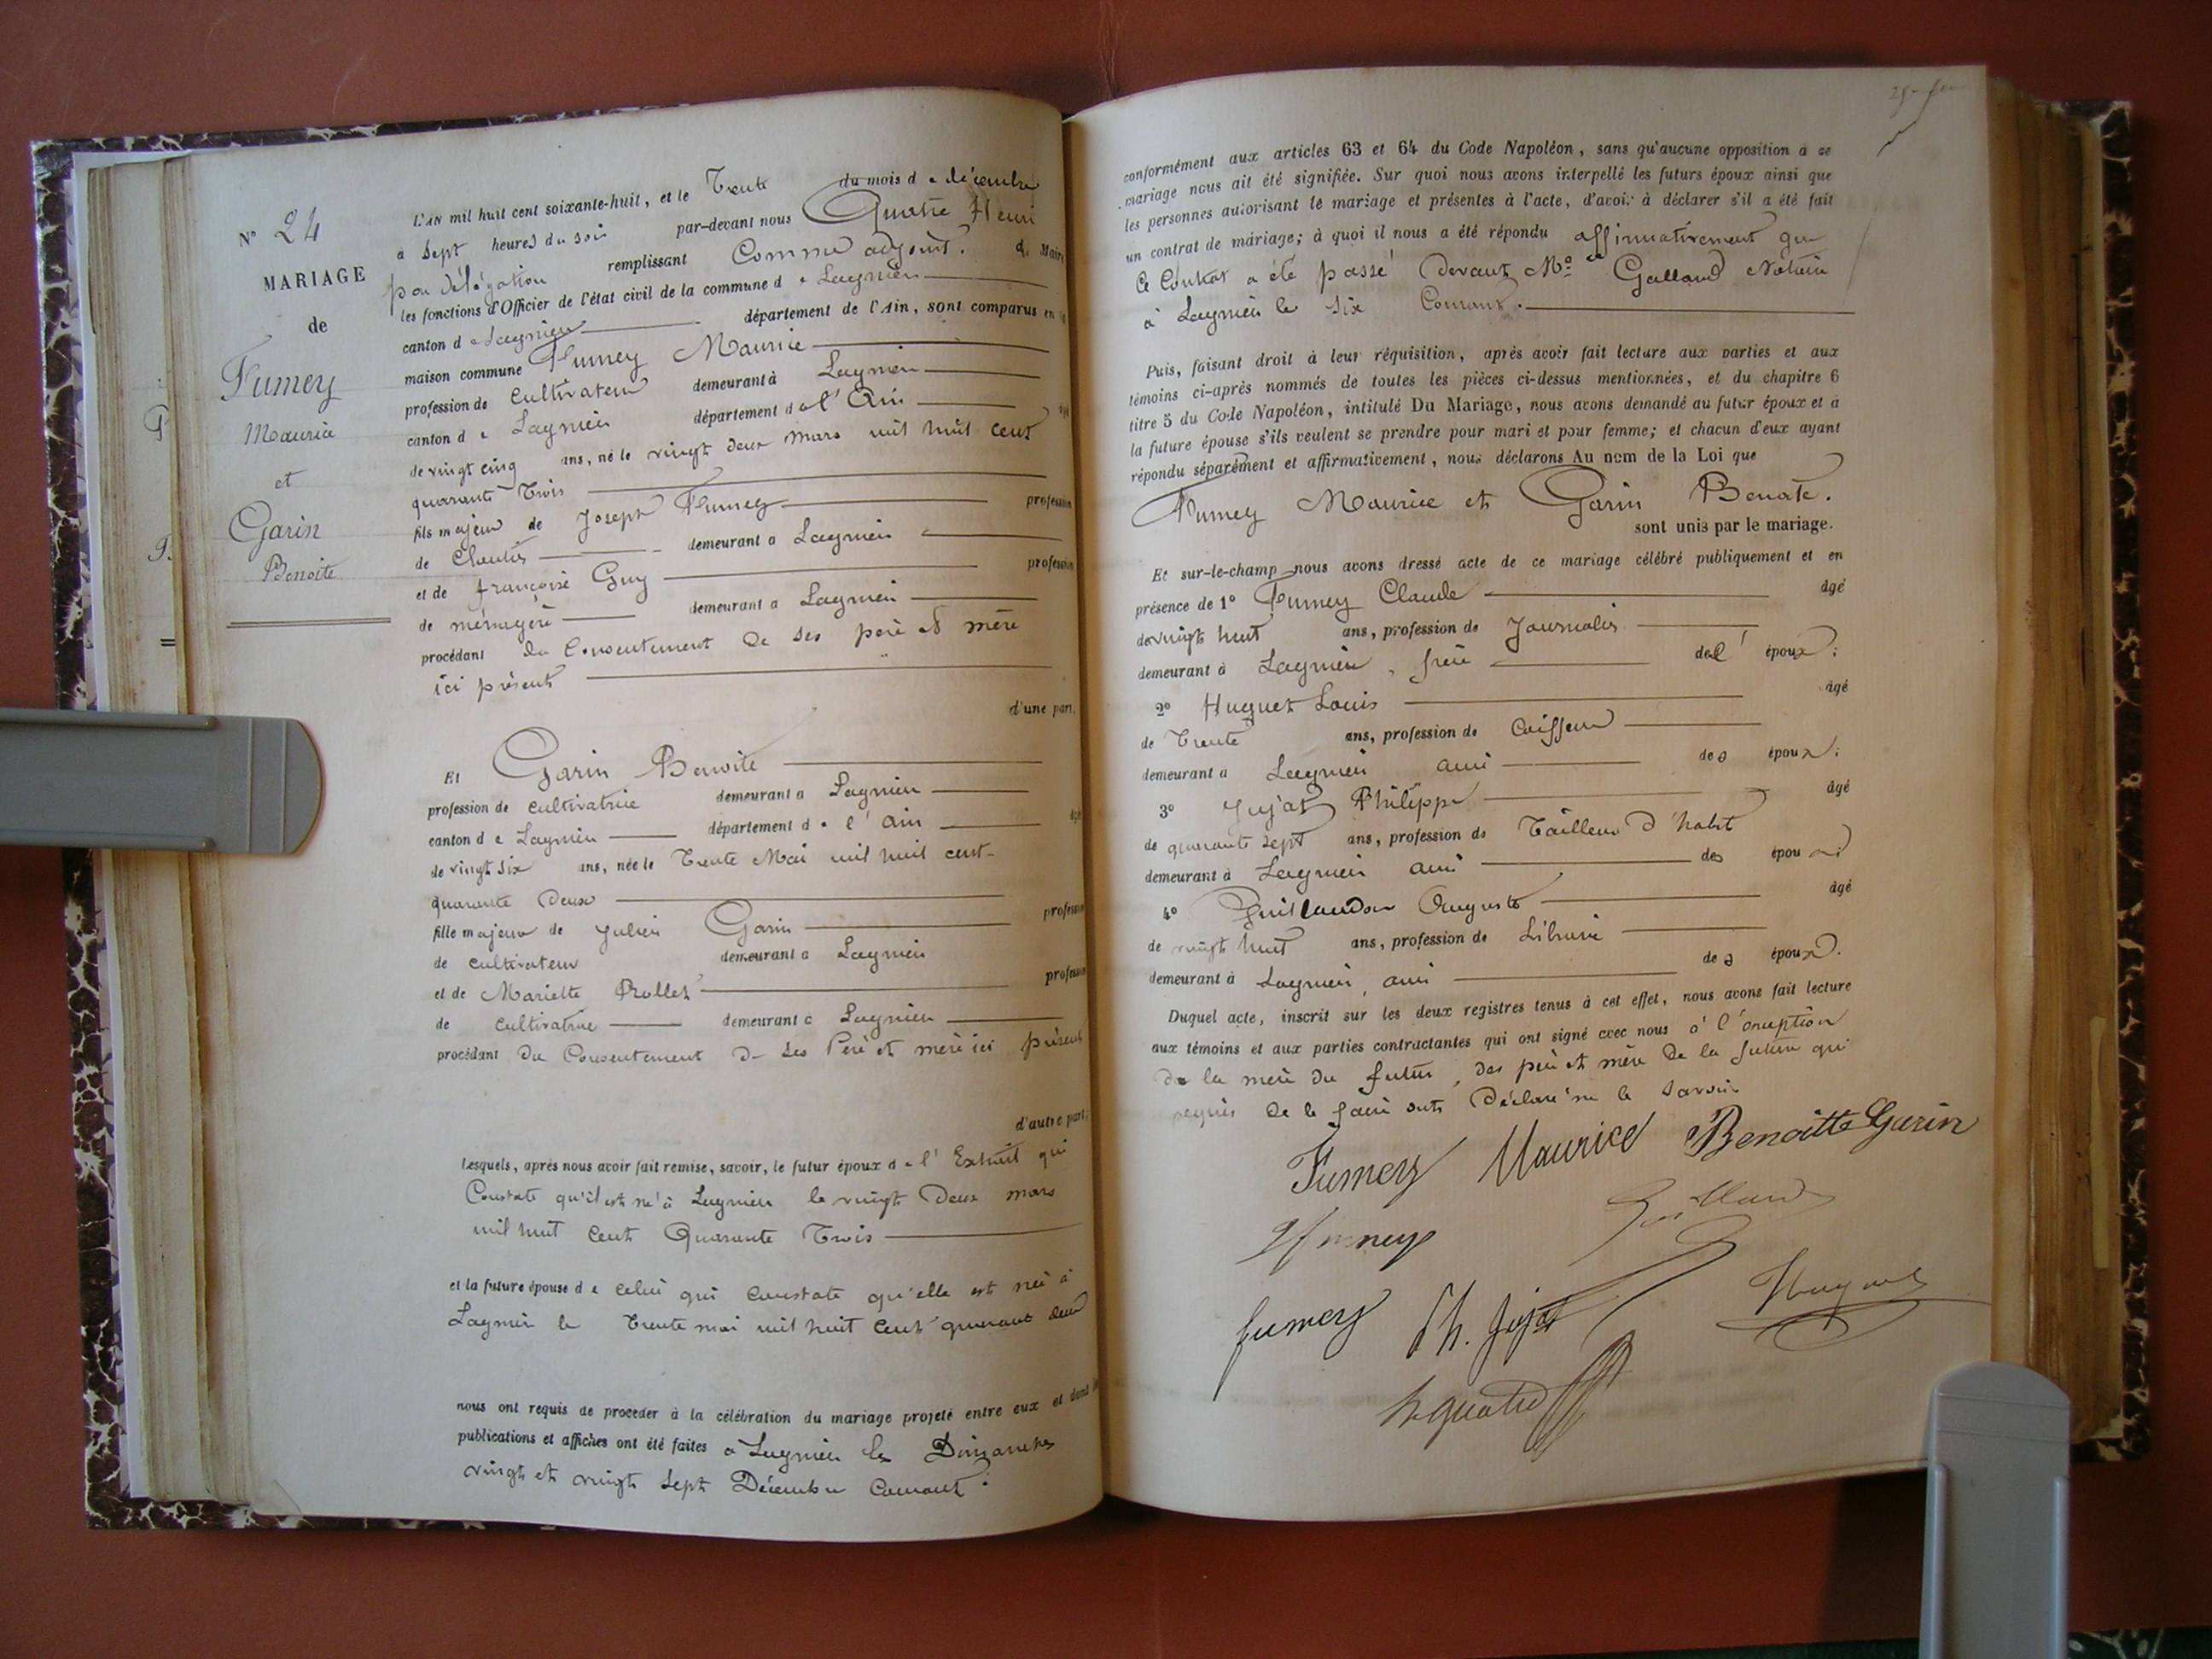 N° 24
MARIAGE
de
Fumey
Maurice
et
Garin
Benoite
L'AN mil huit cent soixante-huit, et le Trente du mois de décembre
à Sept heures du soir par-devant nous Quatre Henri
par délégation remplissant Comme adjoint. du Maire
les fonctions d'Officier de l'état civil de la commune de Lagnieu
canton de Lagnieu département de l'Ain, sont comparus en la
maison commune Fumey Maurice
profession de Cultivateur demeurant à Lagnieu
canton de Lagnieu département de l'Ain âgé
de vingt cinq ans, né le vingt deux mars mil huit cent
quarante Trois
fils majeur de Joseph Fumey profession
de demeurant à Lagnieu
et de françoise Guy profession
de ménagère demeurant à Lagnieu
procédant du Consentement de ses père et mère
ici présents
d'une part,
Et Garin Benoite
profession de cultivatrice demeurant à Lagnieu
canton de Lagnieu département de l'Ain âgé
de vingt six ans, née le Trente Mai mil huit cent
quarante Deux
fille majeur de Julien Garin profession
de cultivateur demeurant à Lagnieu
et de Mariette Rollet profession
de cultivatrice demeurant à Lagnieu
procédant du Consentement de ses Père et mère ici présents
d'autre part;
Lesquels, après nous avoir fait remise, savoir, le futur époux de l'Extrait qui
Constate qu'il est né à Lagnieu le vingt Deux mars
mil huit Cent Quarante Trois
et la future épouse de celui qui constate qu'elle est née à
Lagnieu le Trente mai mil huit cent quarant deux
nous ont requis de procéder à la célébration du mariage projeté entre eux et dont les
publications et affiches ont été faites à Lagnieu les Dimanches
vingt et vingt sept Décembre Courant.
conformément aux articles 63 et 64 du Code Napoléon, sans qu'aucune opposition à ce
mariage nous ait été signifiée. Sur quoi nous avons interpellé les futurs époux ainsi que
les personnes autorisant le mariage et présentes à l'acte, d'avoir à déclarer s'il a été fait
un contrat de mariage; à quoi il nous a été répondu affirmativement que
Ce Contrat a été passé devant Me Galland Notaire
à Lagnieu le six Courant.
Puis, faisant droit à leur réquisition, après avoir fait lecture aux parties et aux
témoins ci-après nommés de toutes les pièces ci-dessus mentionnées, et du chapitre 6
titre 5 du Code Napoléon, intitulé Du Mariage, nous avons demandé au futur époux et à
la future épouse s'ils veulent se prendre pour mari et pour femme; et chacun d'eux ayant
répondu séparément et affirmativement, nous déclarons Au nom de la Loi que
Fumey Maurice et Garin Benoite.
sont unis par le mariage.
Et sur-le-champ nous avons dressé acte de ce mariage célébré publiquement et en
présence de 1° Fumey Claude âgé
de vingt huit ans, profession de Journalier
demeurant à Lagnieu, frère de l'époux;
2° Huguet Louis âgé
de Trente ans, profession de Coiffeur
demeurant à Lagnieu ami des époux;
3° Jujat Philippe âgé
de quarante sept ans, profession de Tailleur d'habit
demeurant à Lagnieu ami des époux;
4° Auguste âgé
de vingt huit ans, profession de Libraire
demeurant à Lagnieu, ami des époux.
Duquel acte, inscrit sur les deux registres tenus à cet effet, nous avons fait lecture
aux témoins et aux parties contractantes qui ont signé avec nous à l'exception
de la mère du futur, des père et mère de la future qui
requis de le faire ont Déclaré ne le savoir
Fumey Maurice Benoitte Garin
fumey
fumey Ph. Jujat Huguet
h quatre